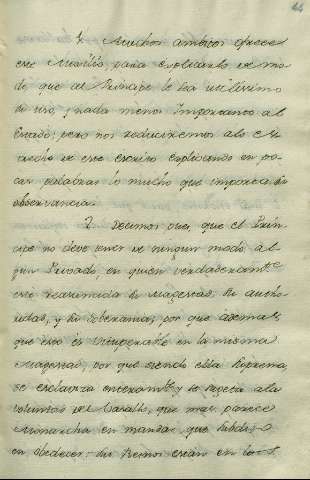 44
1. Muchos ambitos ofrece
este Asumpto para explicarlo de mo
do, que al Principe le sea utilissimo
de uso, y nada menos Importante al
Estado; pero nos reduciremos a lo es
trecho de este escrito explicando en po
cas palabras lo mucho que importa su
observancia.
2. Decimos pues, que el Prin
cipe no deve tener de ningun modo al
gun Privado, en quien verdaderamte
esté reasumida su Magestad, su autho
ridad, y su soberania; por que ademas,
que esto es vituperable en la misma
Magestad, por que siendo ella suprema,
se esclaviza enteramte y se sugeta a la
voluntad del Vasallo, que mas parece
Monarcha en mandar, que subdito
en obedecer: sus Reinos estan en los